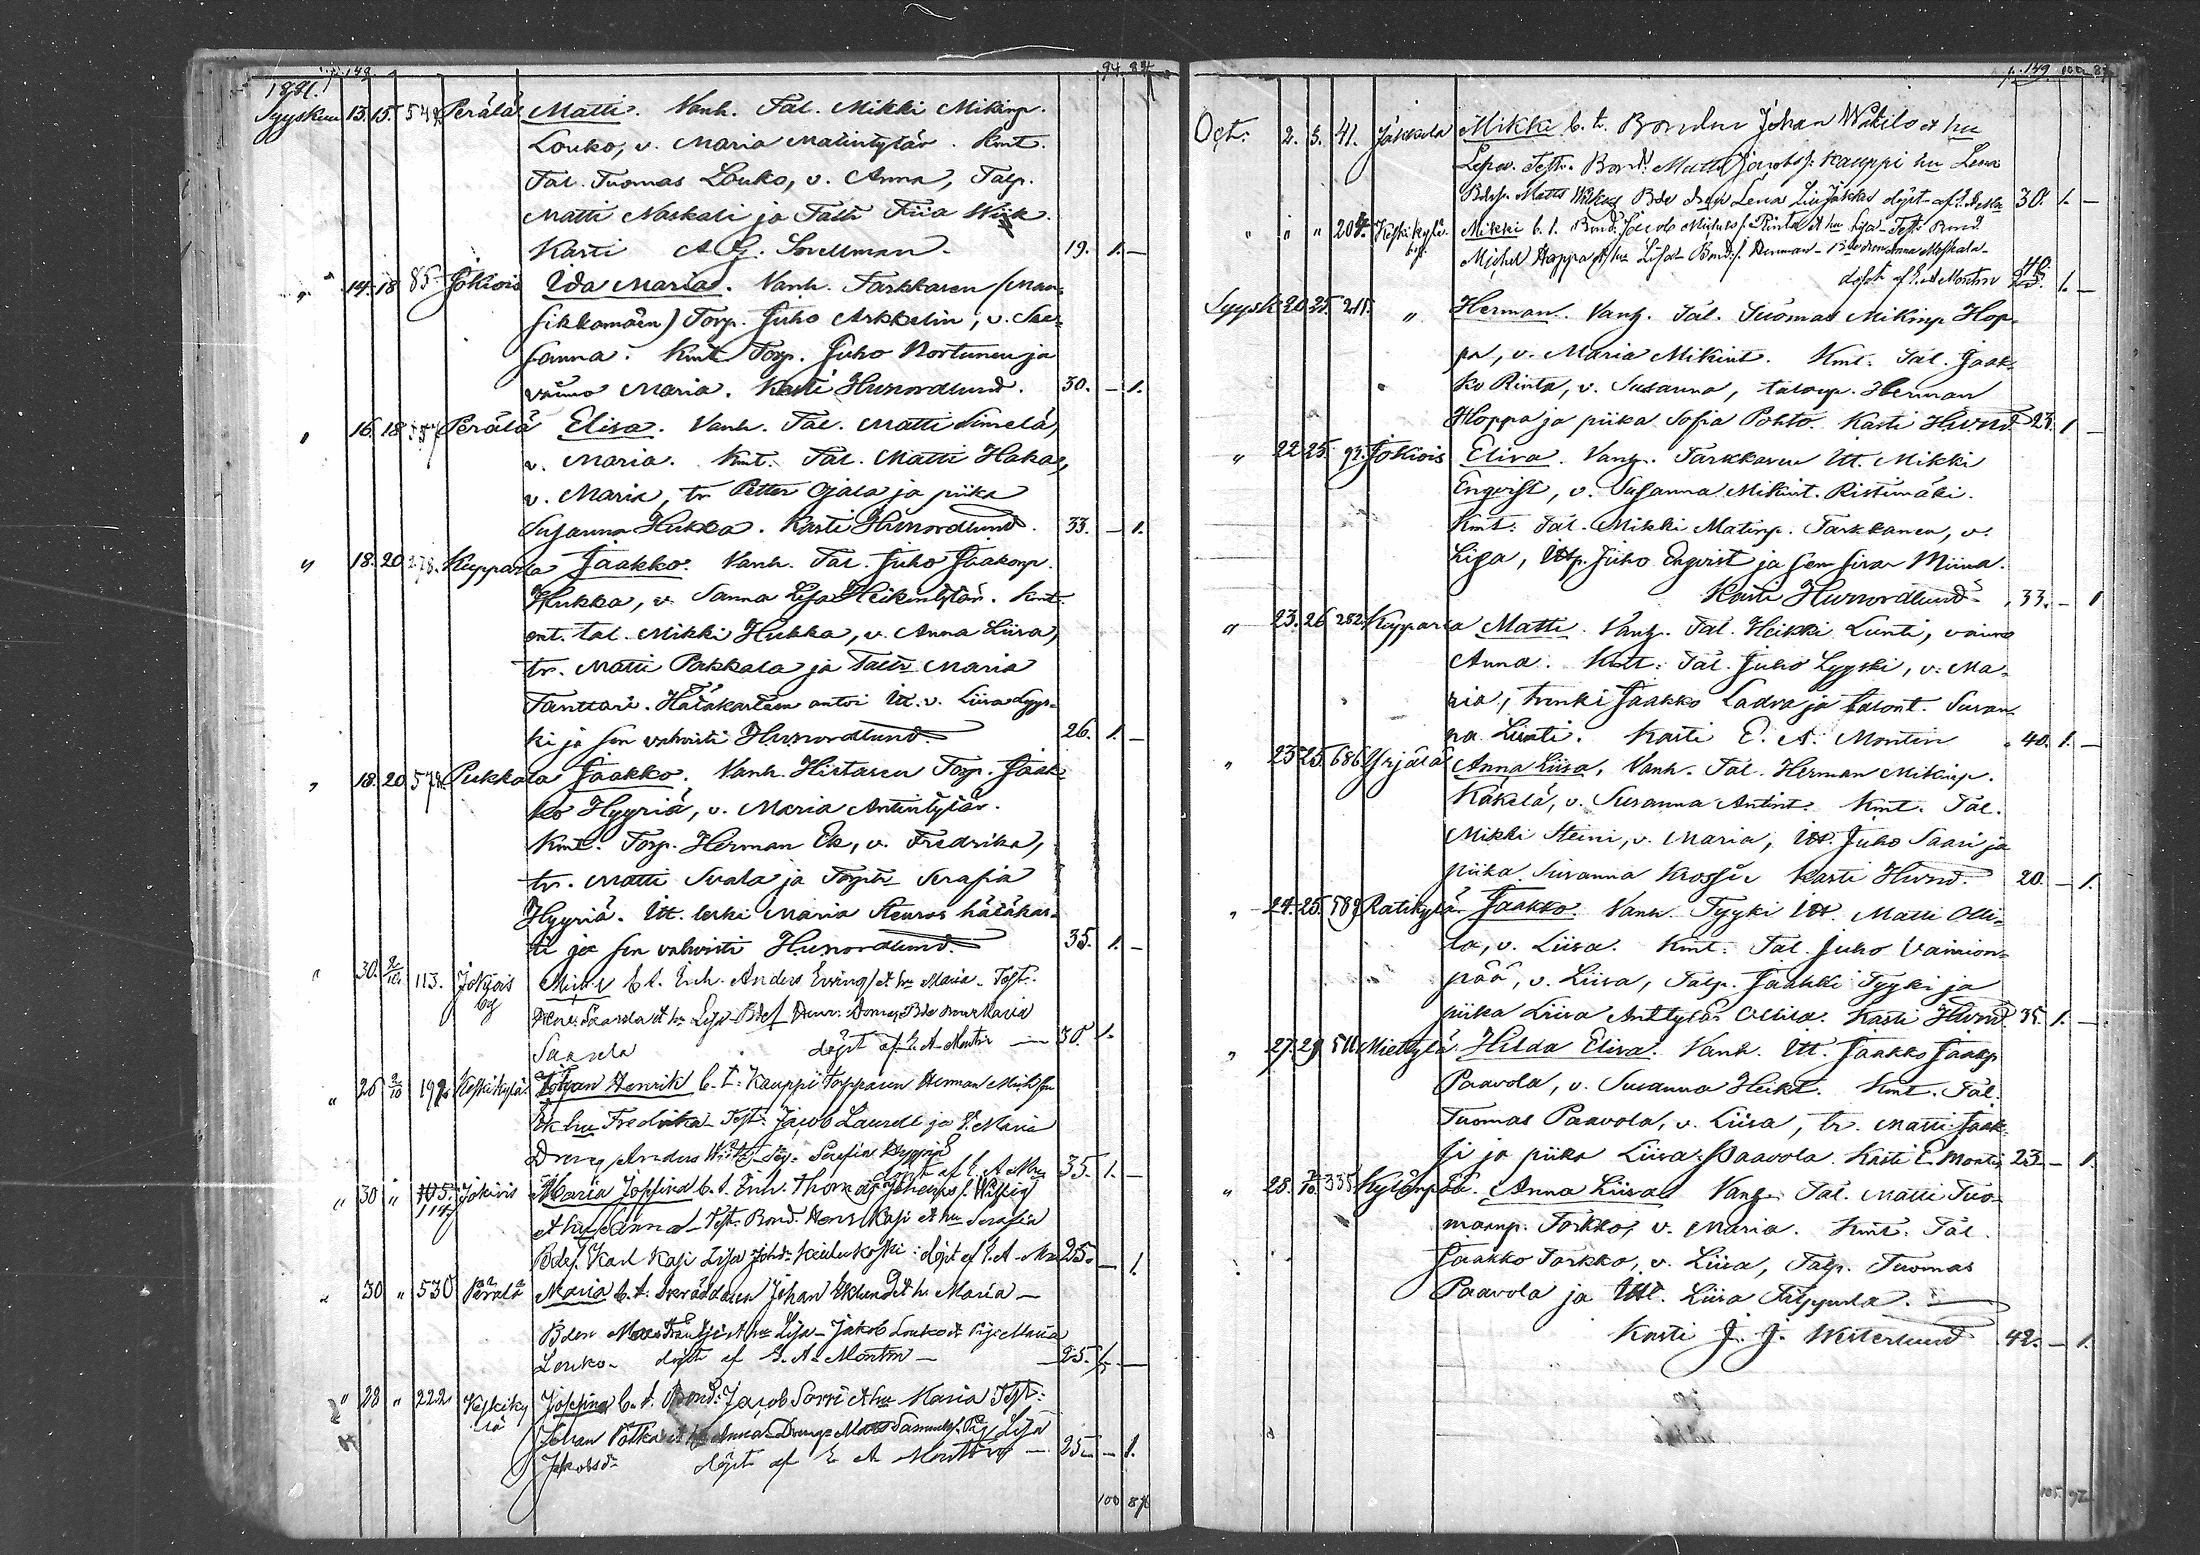 149
94. 87.
1881.
Syyskuu 13. 15. 542 Perälä Matti. Vanh. Tal. Mikki Mikinp.
Louko, v. Maria Matintytär. Kmt.
Tal. Tuomas Louko, v. Anna, Talp.
Matti Naskali ja Taltr Fiia Wiik.
Kasti A. G. Snellman. 19. 1. —
" 14. 18 85. Jokiois Ida Maria. Vanh. Tarkkasen (Man-
sikkamäen) Torp. Juho Arkkelin, v. Su-
sanna. Kmt Torp. Juho Kortunen ja
vaimo Maria. Kasti Hunordlund. 30. — 1.
" 16. 18 Perälä Elisa. Vanh. Tal. Matti Simelä,
v. Maria. Kmt. Tal. Matti Haka,
v. Maria, tr. Petter Ojala ja piika
Susanna Hukka. Kasti Hunordlund. 33. — 1.
" 18. 20 278. Kupparla Jaakko. Vanh. Tal. Juho Jaakonp.
Hukka, v. Sanna Lisa Heikintytär. Kmt.
ent. tal. Mikki Hukka, v. Anna Liisa,
tr. Matti Pakkala ja Taltr Maria
Tanttari. Hätäkasteen antoi Itt. v. Liisa Lyys-
ki ja sen vahvisti Hunordlund. 26. 1. —
" 18. 20 572 Pukkala Jaakko. Vanh. Hirtasen Torp. Jaak-
ko Hyyriä, v. Maria Antintytär.
Kmt. Torp. Herman Ek, v. Fredrika,
tr. Matti Suala ja Torptr Serafia
Hyyriä. Itt. leski Maria Renros hätäkas-
ti ja sen vahvisti Hunordlund. 35. 1. —
" 30. 2/10. 113. Jokiois by b. t. Inh. Anders Evring et hu Maria. Test.
Saarela et hu Lisa Bde Maria
Saarela döpt af E. A. Montin — 30. 1.
" 26 2/10 192 Keskikylä Johan Henrik b. t. Kauppi Torparen Herman
Ek hu Fredrika Test: Jacob Laurell ja P. Maria
Dreng Anders Serafia Hyyriä
döpt af E. A. Mon 35. 1. —
" 30 " 105. 114 Jokiois Maria Josefina b. t. Inh. Thomas
et hu Sanna Test. Bond. Henr. Kasi et hu Serafia
Bdes. Karl Kasi Lisa Johsdr döpt af E. A. Mon 25. — 1.
" 30 " 530 Perälä Maria b. t. Skräddaren Johan Eklund et hu Maria —
Bden et hu Lisa — Jakob Louko et Pig. Maria
Louko — döpt af E. A. Montin — 25. 1. —
" 28 " 222 Keskiky
lä Josefina b. t. Bond. Jacob Sorri et hu Maria Test:
Johan Potka et hu Anna Dreng Matts Samuels. Pig. Lisa
Jakobsdr döpt af E A Montin — 25. — 1.
100 87
p. 149. 100. 87
Oct. 2. 3. 41. Jäkkelä Mikki b. t. Bonden Johan Wäkilo et hu
Lepa. Test. Bond. Matts Jacobs. Kauppi hu Lena
Bdes. Matts Bde dr Lena Lisa döpt af 30. 1. —
" " " 204 Keskikylä by. Mikki b. t. Bond. Jacob Michels s. Rinta et hu Lisa Test. Bond
Michel Hoppa et hu Lisa Bond. s. Herman — Anna Naskala
döpt af E. A. Montin 25. 1. —
Syysk. 20. 25. 215. " Herman. Vanh. Tal. Tuomas Mikinp Hop-
pa, v. Maria Mikint. Kmt. Tal. Jaak-
ko Rinta, v. Susanna, talonp. Herman
Hoppa ja piika Sofia Pohto. Kasti Hunrd. 23. 1 —
" 22. 25. 93. Jokiois Elisa. Vanh. Tarkkasen Itt. Mikki
Enqvist, v. Susanna Mikint. Ristimäki.
Kmt: Tal. Mikki Matinp. Tarkkanen, v.
Lisa, Ittp. Juho Enqvist ja sen sisar Miina.
Kasti Hunordlund. 33. — 1
" 23. 26 282. Kupparla Matti. Vanh. Tal. Heikki Lunti, vaimo
Anna. Kmt: Tal. Juho Lyyski, v. Ma-
ria, trenki Jaakko Ladva ja talont. Susan-
na Lunti. Kasti E. A. Montin 40. 1. —
" 23 25. 686. Yrjälä Anna Liisa, Vanh. Tal. Herman Mikinp.
Käkelä, v. Susanna Antint. Kmt. Tal.
Mikki Steini, v. Maria, Itt. Juho Saari ja
piika Susanna Krossi. Kasti Hunrd. 20. — 1.
" 24. 25. 589 Ratikylä Jaakko. Vanh. Tyyki Itt. Matti Olli-
la, v. Liisa. Kmt: Tal. Juho Vainion-
pää, v. Liisa, Talp. Jaakki Tyyki ja
piika Liisa Anttytär Ollila. Kasti Hunrd 35. 1. —
" 27. 29 511 Miettylä Hilda Elisa. Vanh. Itt. Jaakko Jaakp.
Paavola, v. Susanna Heikt. Kmt. Tal.
Tuomas Paavola, v. Liisa, tr. Matti Jaak-
si ja piika Liisa Paavola. Kasti E Montin 23. — 1.
" 28. 2/10. 335 Kylänpää. Anna Liisa Vanh. Tal. Matti Tuo-
maanp. Torkko, v. Maria. Kmt. Tal.
Jaakko Torkko, v. Liisa, Talp. Tuomas
Paavola ja Itt. Liisa Filppula.
Kasti J. J. Westerlund 42. — 1.
105. 92